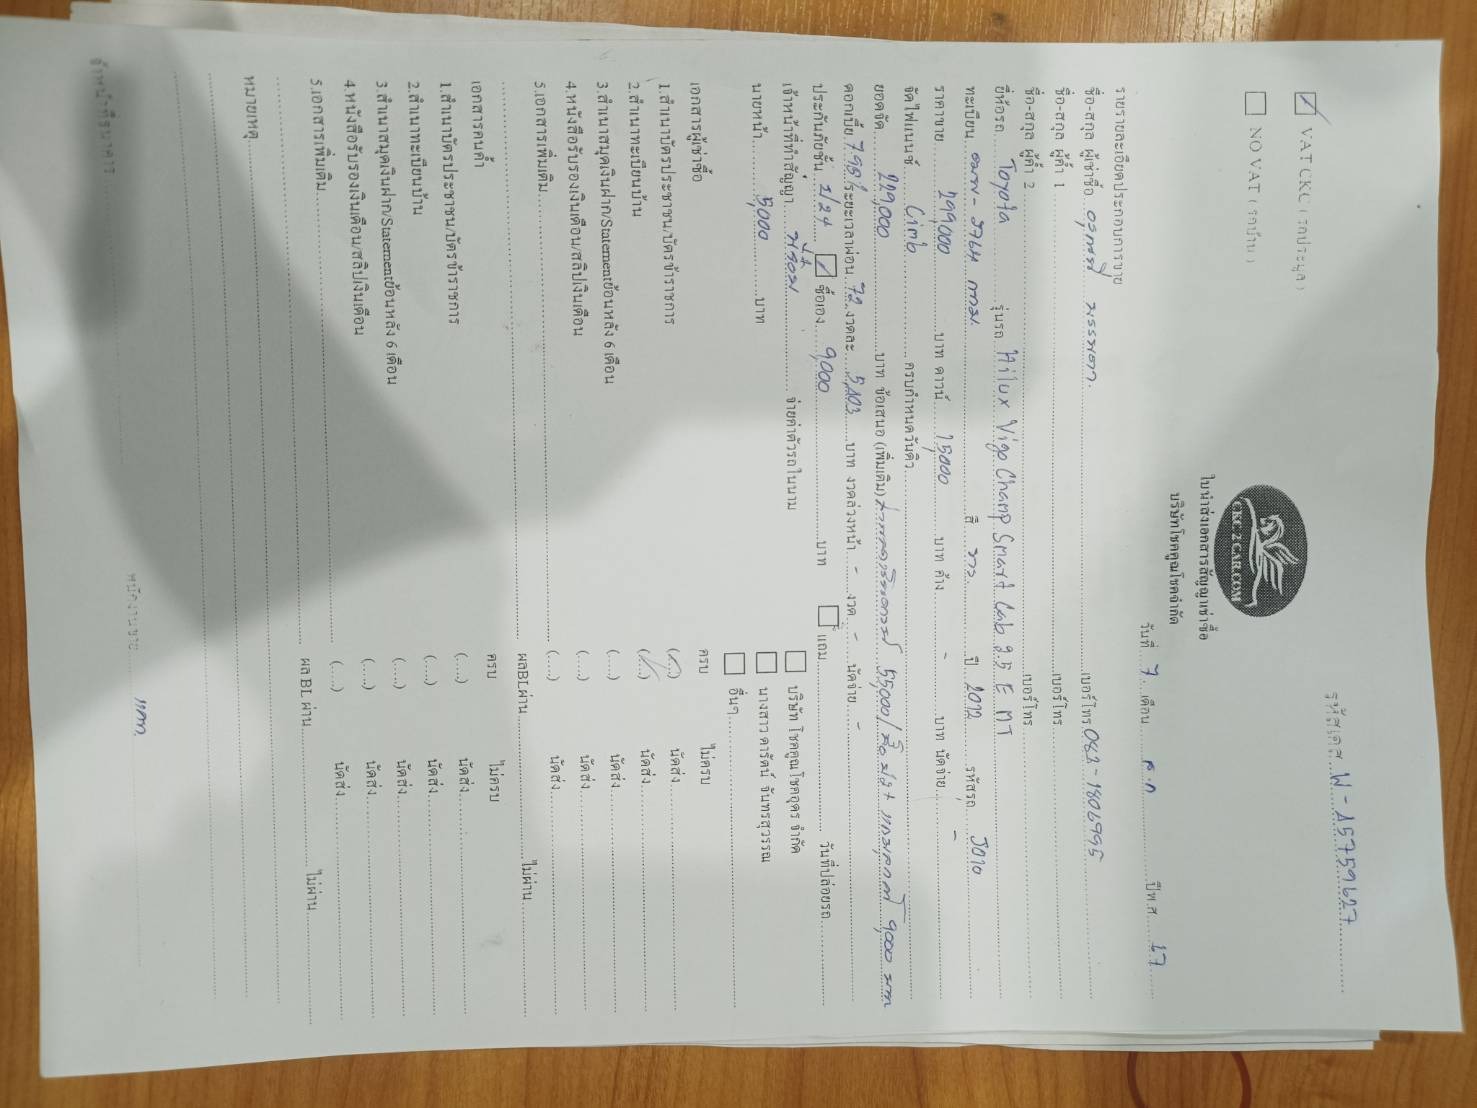 รหัสเคส W - A5759627
VAT CKC ( รถประมูล )
NO VAT ( รถบ้าน )
CKC 2 CAR.COM
ใบนำส่งเอกสารสัญญาเช่าซื้อ
บริษัทโชคคูณโชคจำกัด
วันที่ 7 เดือน ต.ค ปีพ.ศ 67
รายรายละเอียดประกอบการขาย
ชื่อ-สกุล ผู้เช่าซื้อ เบอร์โทร 082-1806995
ชื่อ-สกุล ผู้ค้ำ 1 เบอร์โทร
ชื่อ-สกุล ผู้ค้ำ 2 เบอร์โทร
ยี่ห้อรถ Toyota รุ่นรถ Hilux Vigo Champ Smart Cab 2.5 E MT
ทะเบียน กทม. สี ขาว ปี 2012 รหัสรถ J010
ราคาขาย 299,000 บาท ดาวน์ 15,000 บาท ค้าง - บาท นัดจ่าย -
จัดไฟแนนซ์ Cimb ครบกำหนดวันคิว
ยอดจัด 229,000 บาท ข้อเสนอ (เพิ่มเติม) 55,000 / 9,000 บาท
ดอกเบี้ย 7.98 ระยะเวลาผ่อน 72 งวดละ 5,803 บาท งวดล่วงหน้า - งวด - นัดจ่าย -
ประกันภัยชั้น ป/2+ ซื้อเอง 9,000 บาท แถม วันที่ปล่อยรถ
เจ้าหน้าที่ที่ทำสัญญา จ่ายค่าตัวรถในนาม บริษัท โชคคูณโชคอุดร จำกัด
นายหน้า 5,000 บาท นางสาว ดารัตน์ จันทรสุวรรณ
อื่นๆ
เอกสารผู้เช่าซื้อ ครบ ไม่ครบ
1.สำเนาบัตรประชาชน/บัตรข้าราชการ นัดส่ง
2.สำเนาทะเบียนบ้าน นัดส่ง
3.สำเนาสมุดเงินฝาก/Statementย้อนหลัง 6 เดือน (....) นัดส่ง
4.หนังสือรับรองเงินเดือน/สลิปเงินเดือน (....) นัดส่ง
5.เอกสารเพิ่มเติม (....) นัดส่ง
ผลBLผ่าน ไม่ผ่าน
เอกสารคนค้ำ ครบ ไม่ครบ
1.สำเนาบัตรประชาชน/บัตรข้าราชการ (....) นัดส่ง
2.สำเนาทะเบียนบ้าน (....) นัดส่ง
3.สำเนาสมุดเงินฝาก/Statementย้อนหลัง 6 เดือน (....) นัดส่ง
4.หนังสือรับรองเงินเดือน/สลิปเงินเดือน (....) นัดส่ง
5.เอกสารเพิ่มเติม (....) นัดส่ง
ผล BL ผ่าน ไม่ผ่าน
หมายเหตุ
พนักงานขาย
เจ้าหน้าที่ธนาคาร